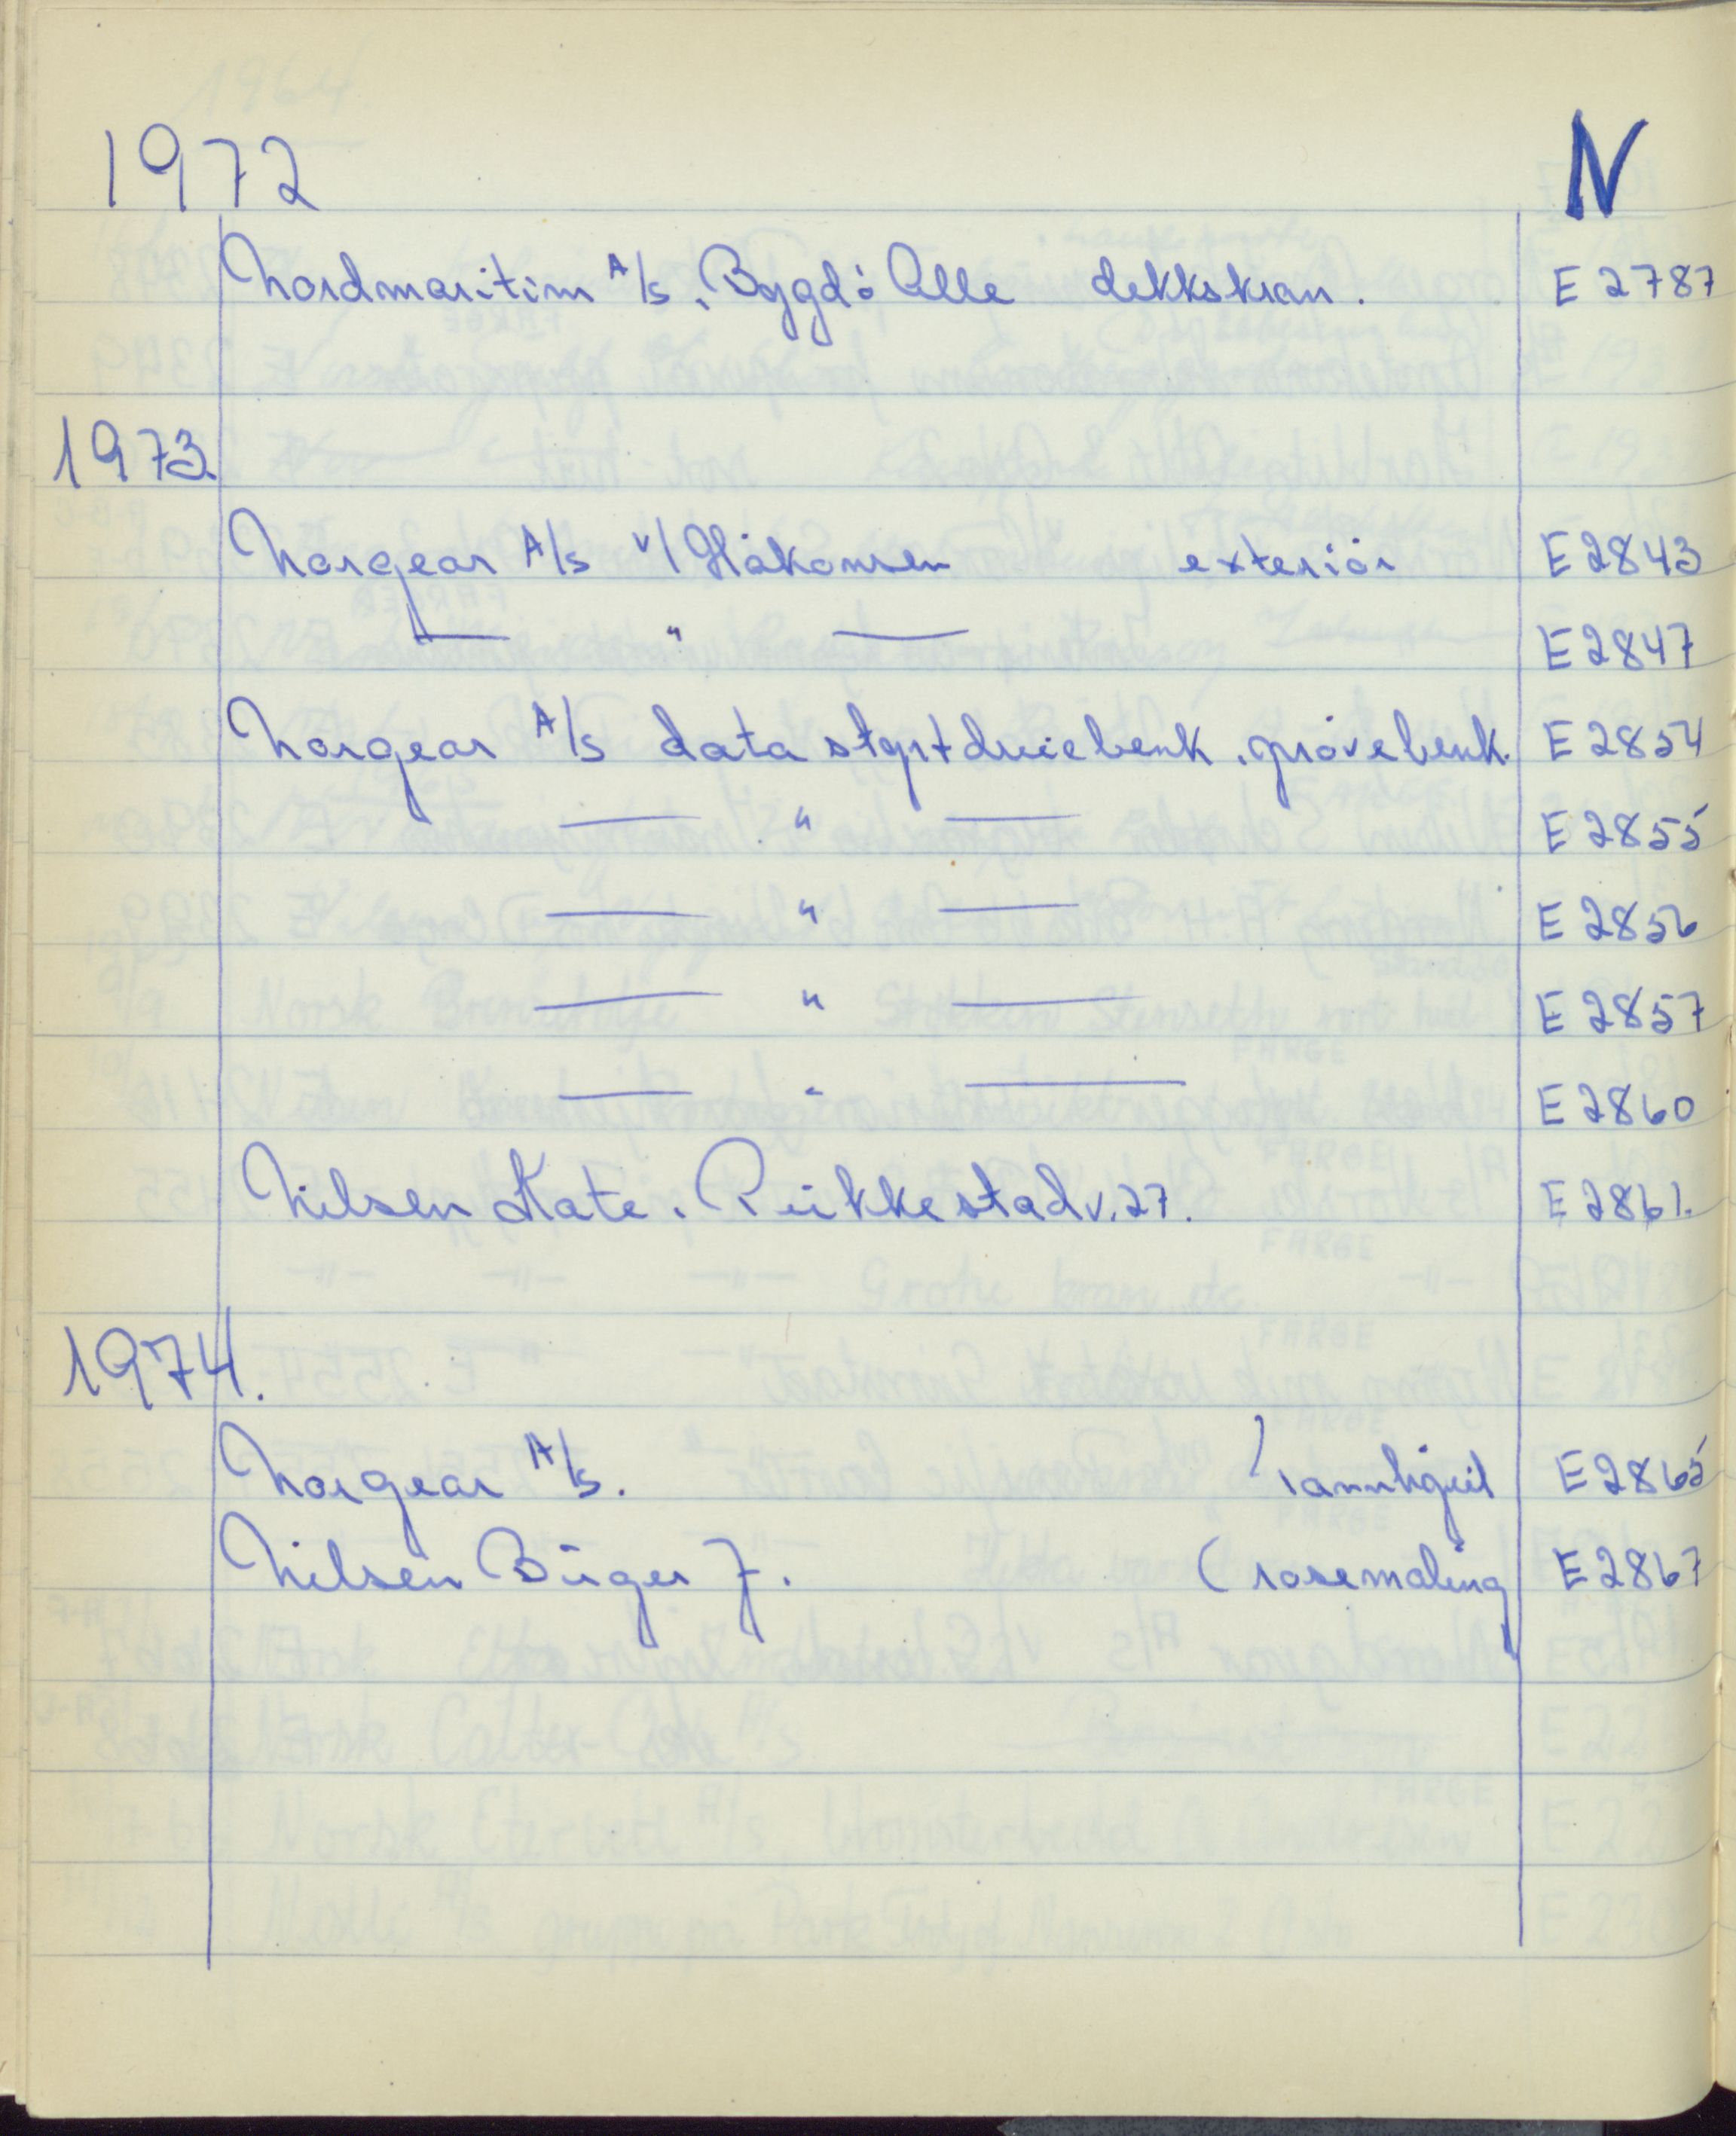 1972 N
Nordmaritim A/s, Bygdö Alle dekkskran. E 2787
1973.
Norgear A/s v/Håkonsen exteriör E 2843
— " — E 2847
Norgear A/s data styrt dreiebenk. prövebenk. E 2854
— " — E 2855
— " — E 2856
— " — E 2857
— " — E 2860
Nilsen Kate. Reikkestadv. 27. E 2861.
1974.
Norgear A/s. tannhjul E 2865
Nilsen Birger J. (rosemaling E 2867